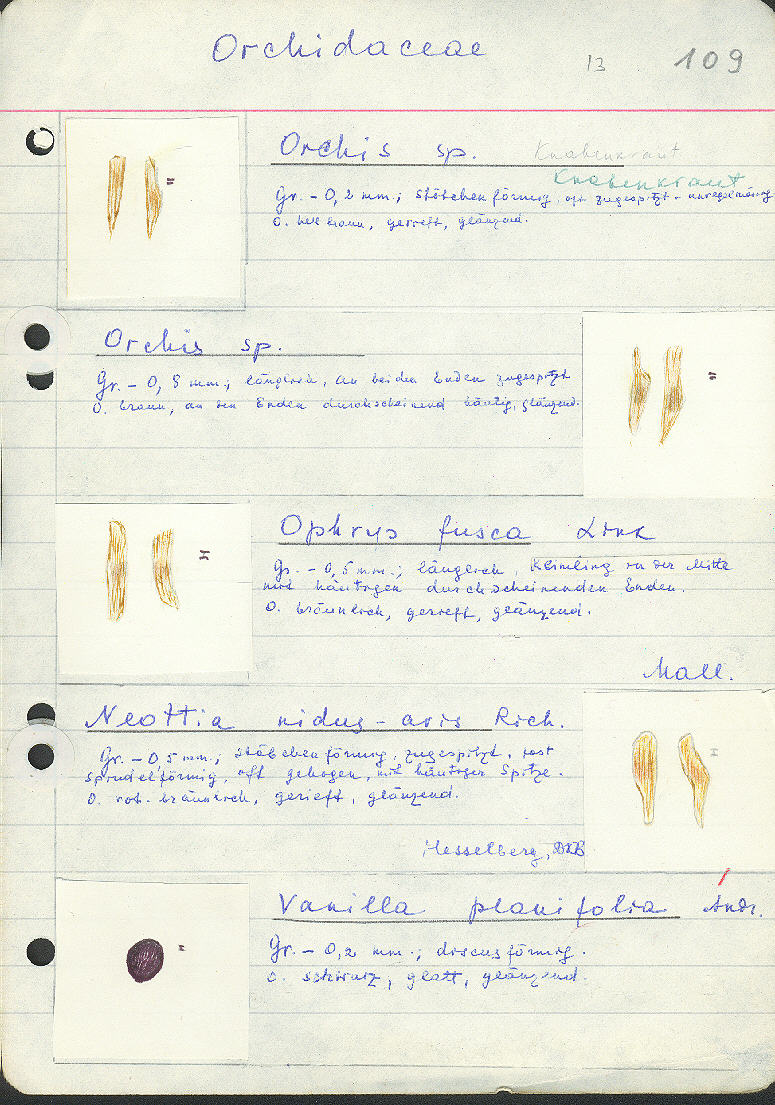 Orchidaceae
13 109
Orchis sp. Knabenkraut
Knabenkraut
Gr. - 0,2 mm.; stäbchenförmig, oft zugespitzt - unregelmässig
O. hell braun, gerieft, glänzend.
Orchis sp.
Gr. - 0,5 mm.; länglich, an beiden Enden zugespitzt
O. braun, an den Enden durchscheinend häutig, glänzend.
Ophrys fusca Link
Gr. - 0,5 mm.; länglich, Keimling in der Mitte
mit häutigen durchscheinenden Enden.
O. bräunlich, gerieft, glänzend.
Mall.
Neottia nidus-avis Rich.
Gr. - 0,5 mm.; stäbchenförmig, zugespitzt, fast
spindelförmig, oft gebogen, mit häutiger Spitze.
O. rot-bräunlich, gerieft, glänzend.
Hesselberg,
Vanilla planifolia Andr.
Gr. - 0,2 mm.; discusförmig.
O. schwarz, glatt, glänzend.